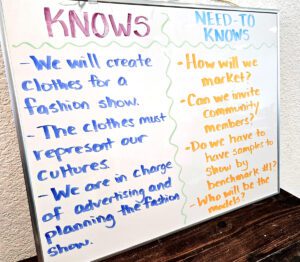 KNOWS
- We will create
clothes for a
fashion show.
- The clothes must
represent our
cultures.
- We are in charge
of advertising and
planning the fashion
show.
NEED-TO
KNOWS
- How will we
market?
- Can we invite
community
members?
- Do we have to
have samples to
show by
benchmark #1?
- Who will be the
models?